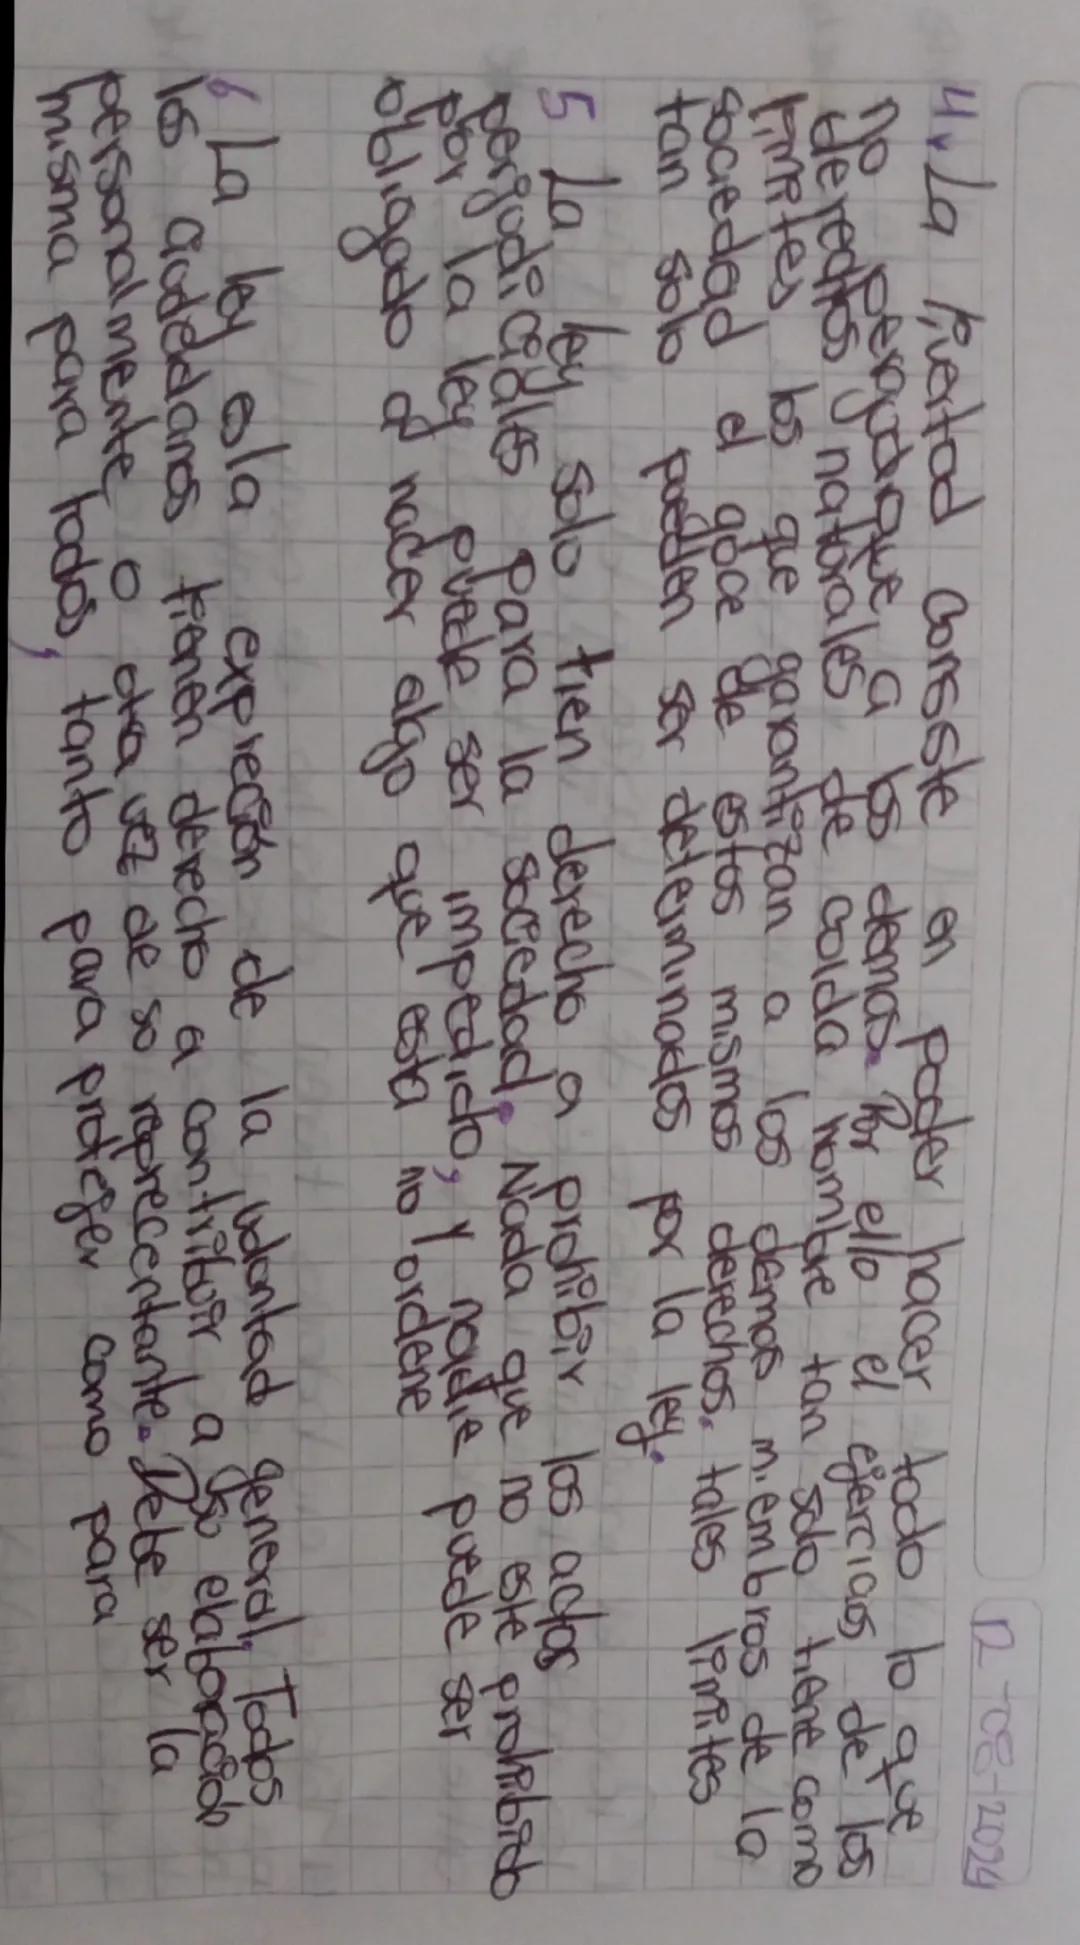 12-08-2024
4. La livertad consiste en poder hacer todo lo que
no perajudique a los demas. Por ello el ejercicios de los
derechos naturales de caida hombre tan solo tiene como
limites los que garantizan a los demas miembros de la
sociedad el goce de estos mismos derechos. tales limites
tan solo pueden ser determinados por la ley.
5 La ley solo tien derecho a prohibir los actos
perjudiciales para la sociedad. Nada que no este prohibido
por la ley puede ser impedido, y nadie puede ser
obligado a hacer algo que esta no ordene
6 La ley es la expreción de la voluntad general. Todos
los ciudedanos tienen derecho a contribuir a su elaboración
personalmente o otra vez de so reprecentante. Debe ser la
misma para todos, tanto para proteger como para